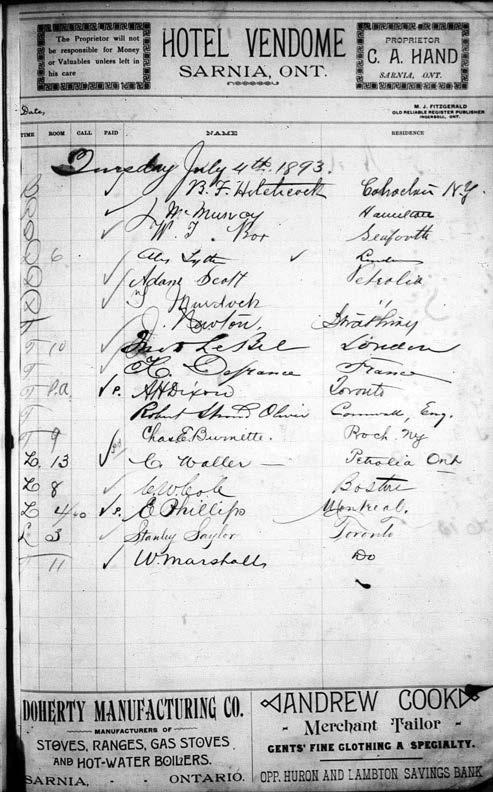 The Proprietor will not
be responsible for Money
or Valuables unless left in
his care
HOTEL VENDOME
SARNIA, ONT.
PROPRIETOR
C. A. HAND
SARNIA, ONT.
Date,
M. J. FITZGERALD
OLD RELIABLE REGISTER PUBLISHER
INGERSOLL, ONT.
TIME ROOM CALL PAID NAME RESIDENCE
Tuesday July 4th 1893.
B. F. Hitchcock Cohocton N.Y.
J McMurray Hamilton
W. J. Box Seaforth
6 Alex London
Adam Scott Petrolia
Murdock "
J. Newton, Strathroy
T 10 LeBel London
T H. Defrance France
T P.a. P. A H Dixon Toronto
Robert Oliver Cornwall, Eng.
T 9 Chas E. Burnette. Roch. Ny
L. 13 C. Waller — Petrolia Ont
L 8 C. W. Cole Boston
L 4 P. C Phillips Montreal.
L 3 Stanley Saylor Toronto
T 11 W. Marshall Do
DOHERTY MANUFACTURING CO.
MANUFACTURERS OF
STOVES, RANGES, GAS STOVES
AND HOT-WATER BOILERS.
SARNIA, - - ONTARIO.
ANDREW COOK
- Merchant Tailor -
GENTS' FINE CLOTHING A SPECIALTY.
OPP. HURON AND LAMBTON SAVINGS BANK